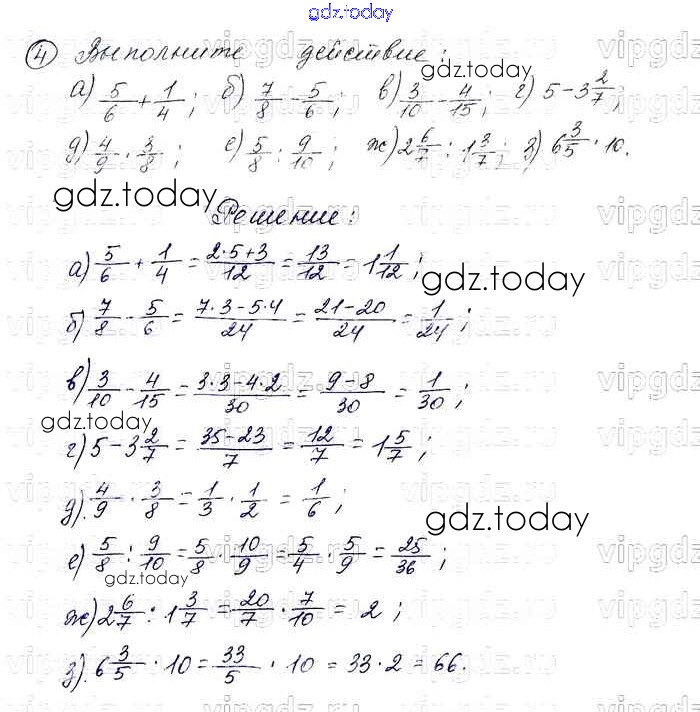 gdz.today
④ Выполните действие:
а) 5/6 + 1/4; б) 7/8 - 5/6; в) 3/10 - 4/15; г) 5 - 3 2/7;
gdz.today
д) 4/9 · 3/8; е) 5/8 : 9/10; ж) 2 6/7 : 1 3/7; з) 6 3/5 · 10.
gdz.today
Решение:
а) 5/6 + 1/4 = (2·5+3)/12 = 13/12 = 1 1/12;
gdz.today
б) 7/8 - 5/6 = (7·3-5·4)/24 = (21-20)/24 = 1/24;
в) 3/10 - 4/15 = (3·3-4·2)/30 = (9-8)/30 = 1/30;
gdz.today
г) 5 - 3 2/7 = (35-23)/7 = 12/7 = 1 5/7;
д) 4/9 · 3/8 = 1/3 · 1/2 = 1/6;
gdz.today
е) 5/8 : 9/10 = 5/8 · 10/9 = 5/4 · 5/9 = 25/36;
gdz.today
ж) 2 6/7 : 1 3/7 = 20/7 · 7/10 = 2;
з) 6 3/5 · 10 = 33/5 · 10 = 33·2 = 66.